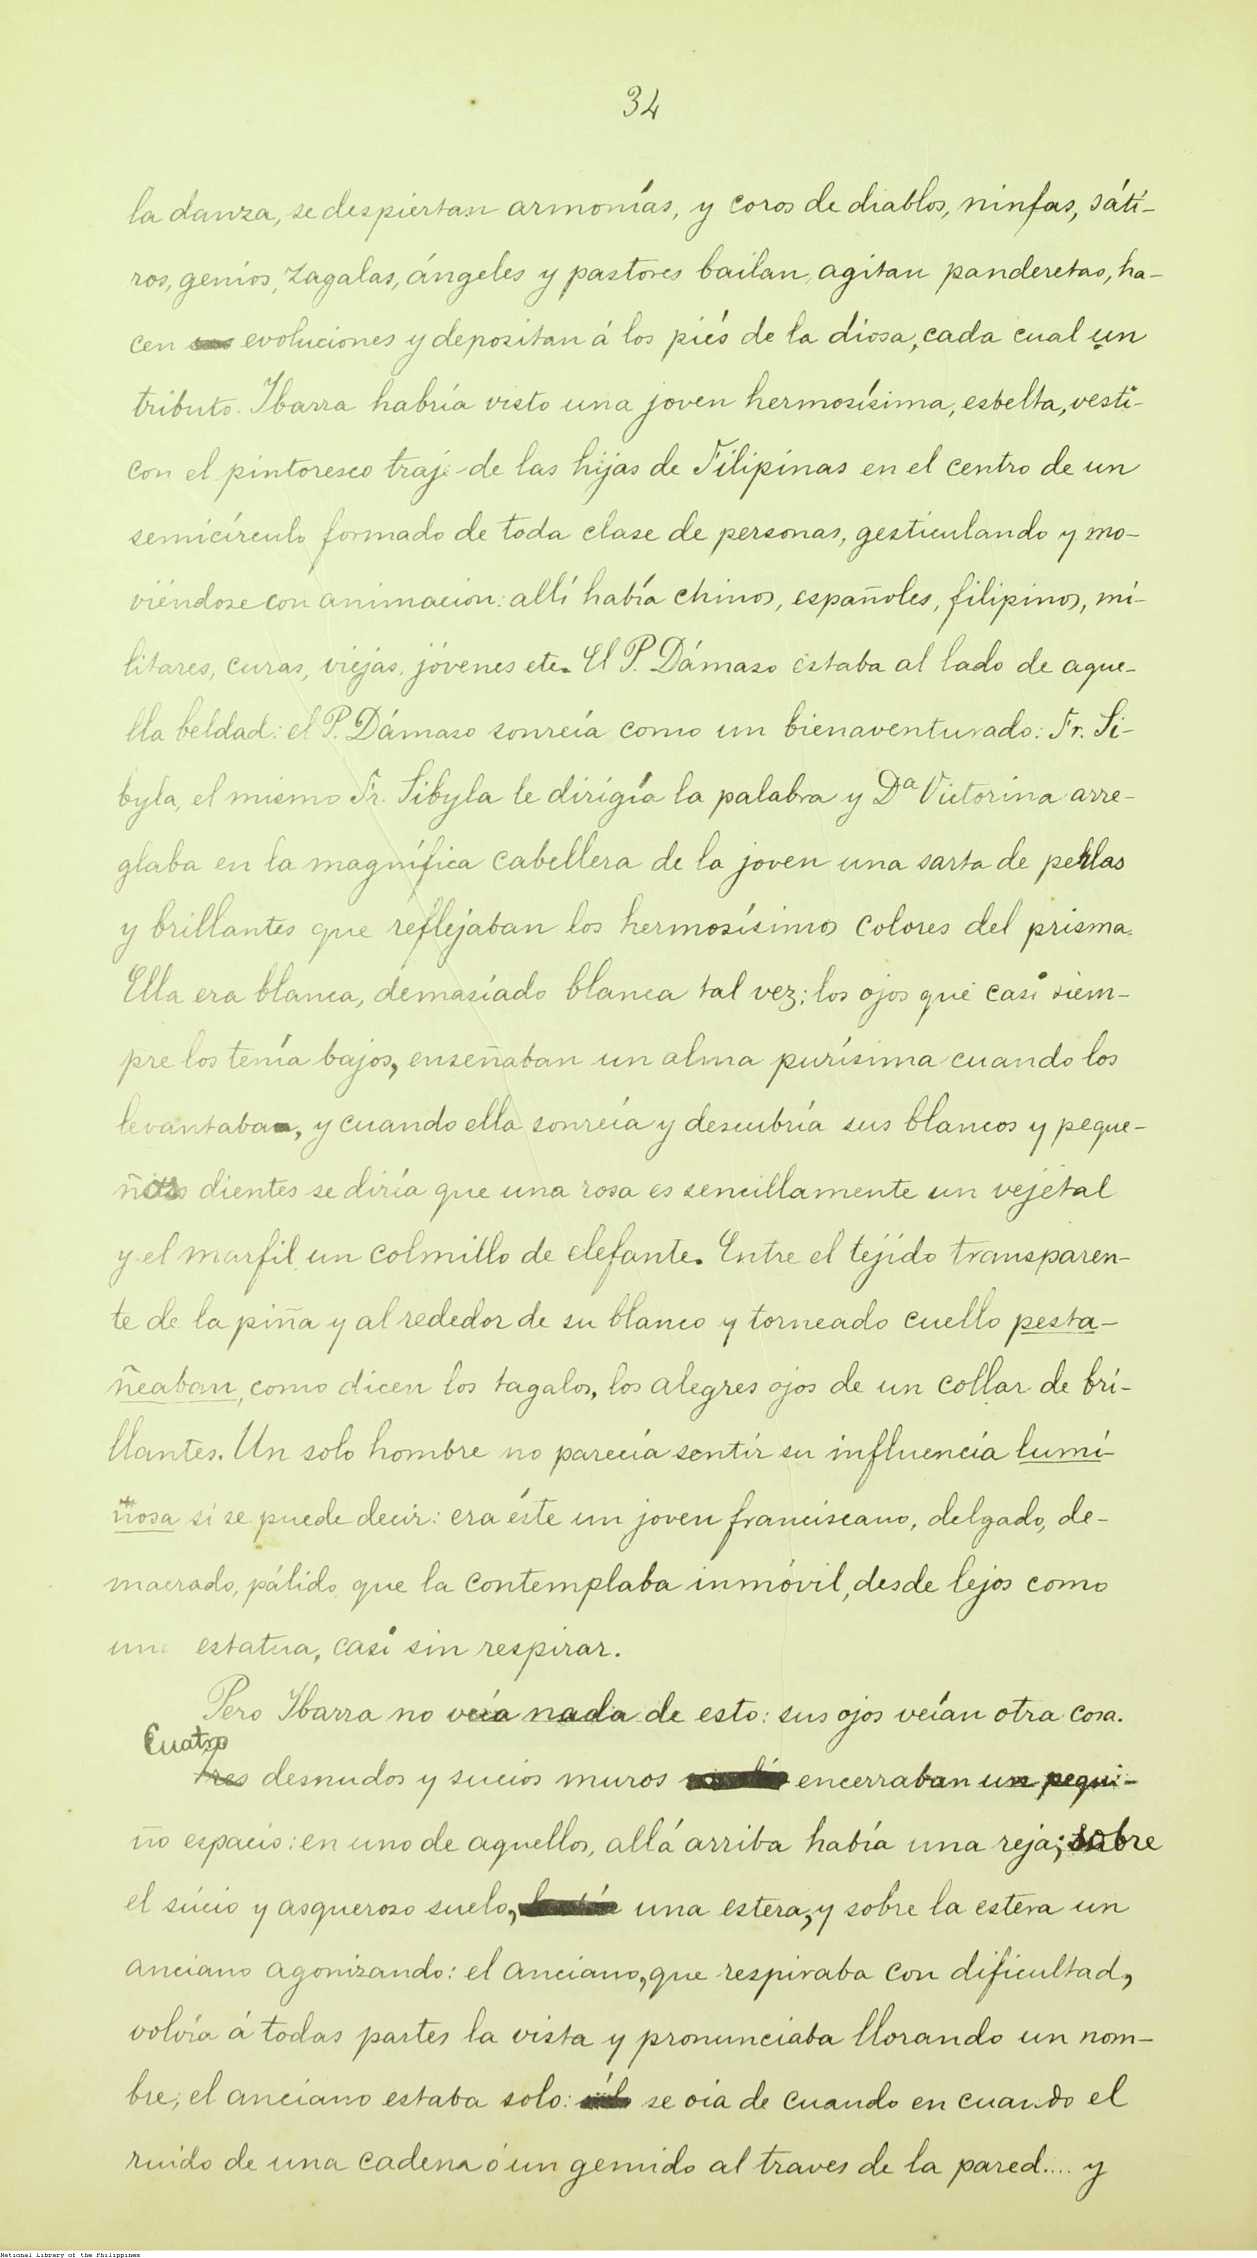 34
la danza, se despiertan armonías, y coros de diablos, ninfas, sáti-
ros, genios, zagalas, ángeles y pastores bailan, agitan panderetas, ha-
cen evoluciones y depositan á los piés de la diosa, cada cual un
tributo. Ibarra habría visto una joven hermosísima, esbelta, vesti-
con el pintoresco traje de las hijas de Filipinas en el centro de un
semicírculo formado de toda clase de personas, gesticulando y mo-
viéndose con animacion: allí había chinos, españoles, filipinos, mi-
litares, curas, viejas, jóvenes etc. El P. Dámaso estaba al lado de aque-
lla beldad: el P. Dámaso sonreía como un bienaventurado: Fr. Si-
byla, el mismo Fr. Sibyla le dirigía la palabra y Dª Victorina arre-
glaba en la magnífica cabellera de la joven una sarta de perlas
y brillantes que reflejaban los hermosísimos colores del prisma.
Ella era blanca, demasiado blanca tal vez; los ojos que casi siem-
pre los tenía bajos, enseñaban un alma purísima cuando los
levantaba, y cuando ella sonreía y descubría sus blancos y peque-
ños dientes se diría que una rosa es sencillamente un vejetal
y el marfil un colmillo de elefante. Entre el tejido transparen-
te de la piña y al rededor de su blanco y torneado cuello pesta-
ñeaban, como dicen los tagalos, los alegres ojos de un collar de bri-
llantes. Un solo hombre no parecía sentir su influencia lumi-
nosa si se puede decir: era éste un joven franciscano, delgado, de-
macrado, pálido que la contemplaba inmóvil, desde lejos como
una estatua, casi sin respirar.
Pero Ibarra no veía nada de esto: sus ojos veían otra cosa.
Cuatro
tres desnudos y sucios muros encerraban un pequi-
ño espacio: en uno de aquellos, allá arriba había una reja; sobre
el súcio y asqueroso suelo, una estera, y sobre la estera un
anciano agonizando: el anciano, que respiraba con dificultad,
volvía á todas partes la vista y pronunciaba llorando un nom-
bre; el anciano estaba solo: se oia de cuando en cuando el
ruido de una cadena ó un gemido al traves de la pared.... y
National Library of the Philippines